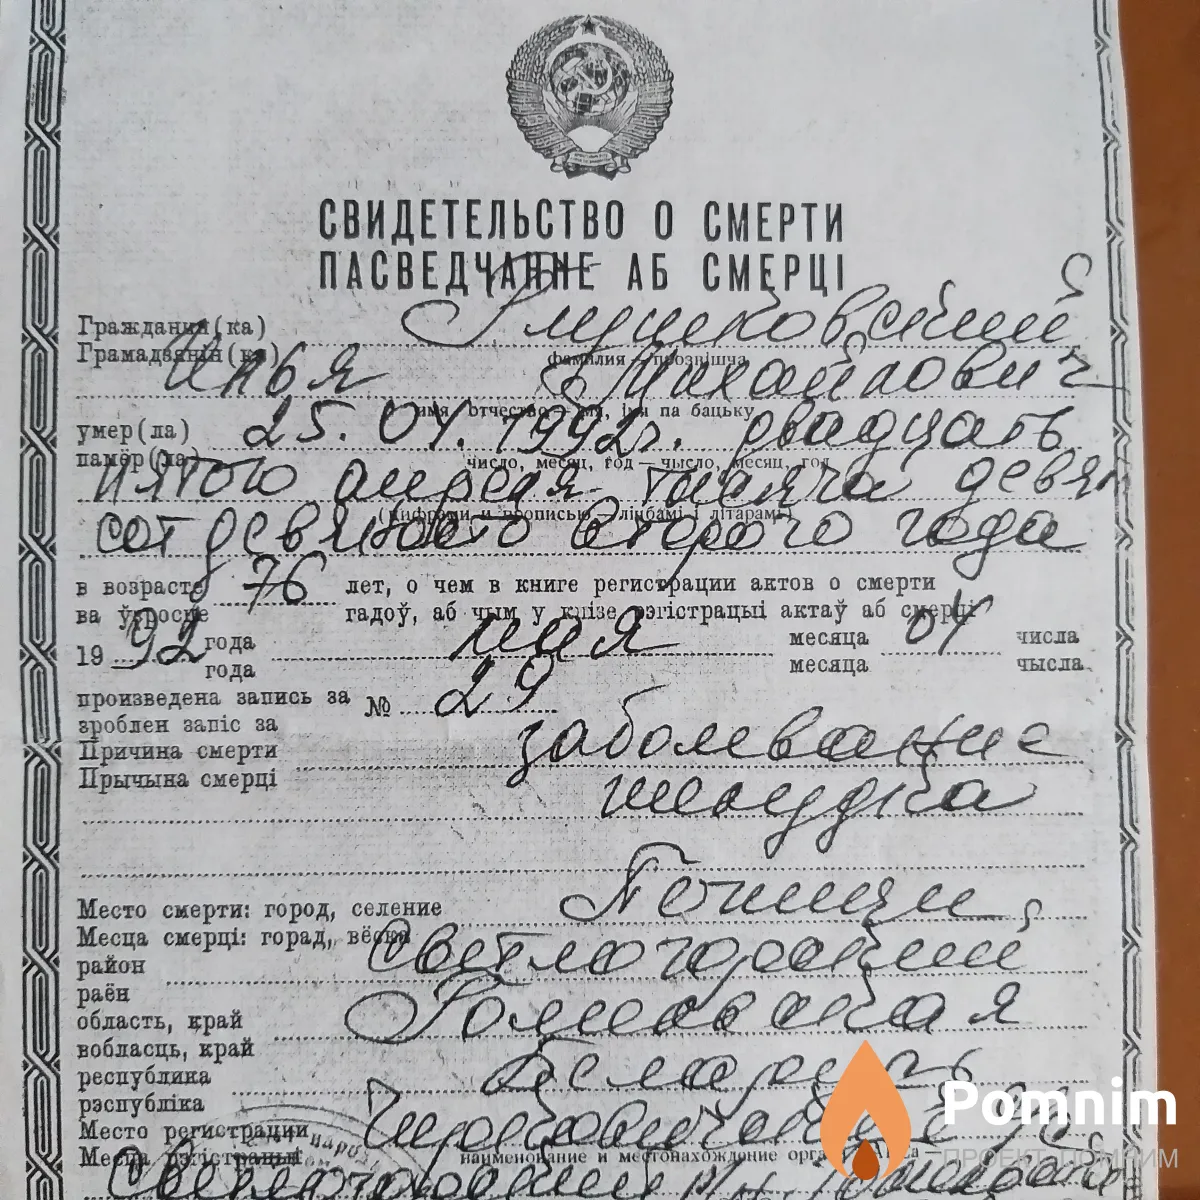 СВИДЕТЕЛЬСТВО О СМЕРТИ
ПАСВЕДЧАННЕ АБ СМЕРЦІ
Гражданин(ка)
Грамадзянін(ка)
фамилия — прозвішча
Илья Михайлович
имя, отчество — імя, імя па бацьку
умер(ла) 25.04.1992г. двадцать
памёр(ла)
число, месяц, год — чысло, месяц, год
пятого апреля тысяча девят
(цифрами и прописью — лічбамі і літарамі)
сот девяносто второго года
в возрасте 76 лет, о чем в книге регистрации актов о смерти
ва ўзросце гадоў, аб чым у кнізе рэгістрацыі актаў аб смерці
19 92 года мая месяца 04 числа
года месяца чысла
произведена запись за № 29
зроблен запіс за
Причина смерти заболевание
Прычына смерці
желудка
Место смерти: город, селение
Месца смерці: горад, вёска
район Светлогорский
раён
область, край Гомельская
вобласць, край
республика Беларусь
рэспубліка
Место регистрации
Месца рэгістрацыі
наименование и местонахождение органа
Светлогорский
Pomnim
ПРОЕКТ ПОМНИМ